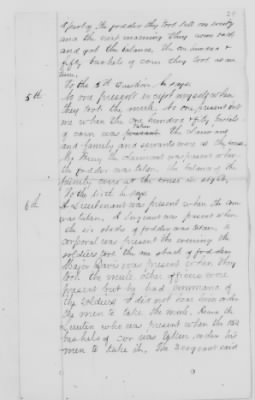 of the fodder they took till on evenity
and the next morning they come back
and got the balance. The one hundred &
fifty bushels of corn they took at one
time.
5th To the 5th Question he says
No one present except myself when
they took the mule. No one present but
me when the one hundred & fifty bushels
of corn was taken. The claimant
and family and servants were at the house.
Mr Henry the claimant was present when
the fodder was taken. the balance of the
family were at the house in sight.
6th To the Sixth he says
A Lieutenant was present when the corn
was taken. A Sergeant was present when
the six stacks of fodder was taken. a
corporal was present the evening the
soldiers got the one stack of fodder.
Major Davis was present when they
took the mule. other officers were
present but he had command of
the soldiers. I did not hear him order
the men to take the mule. Heard the
Lieuten who was present when the 150
bushels of cor was taken, order his
men to take it. The Sergeant said